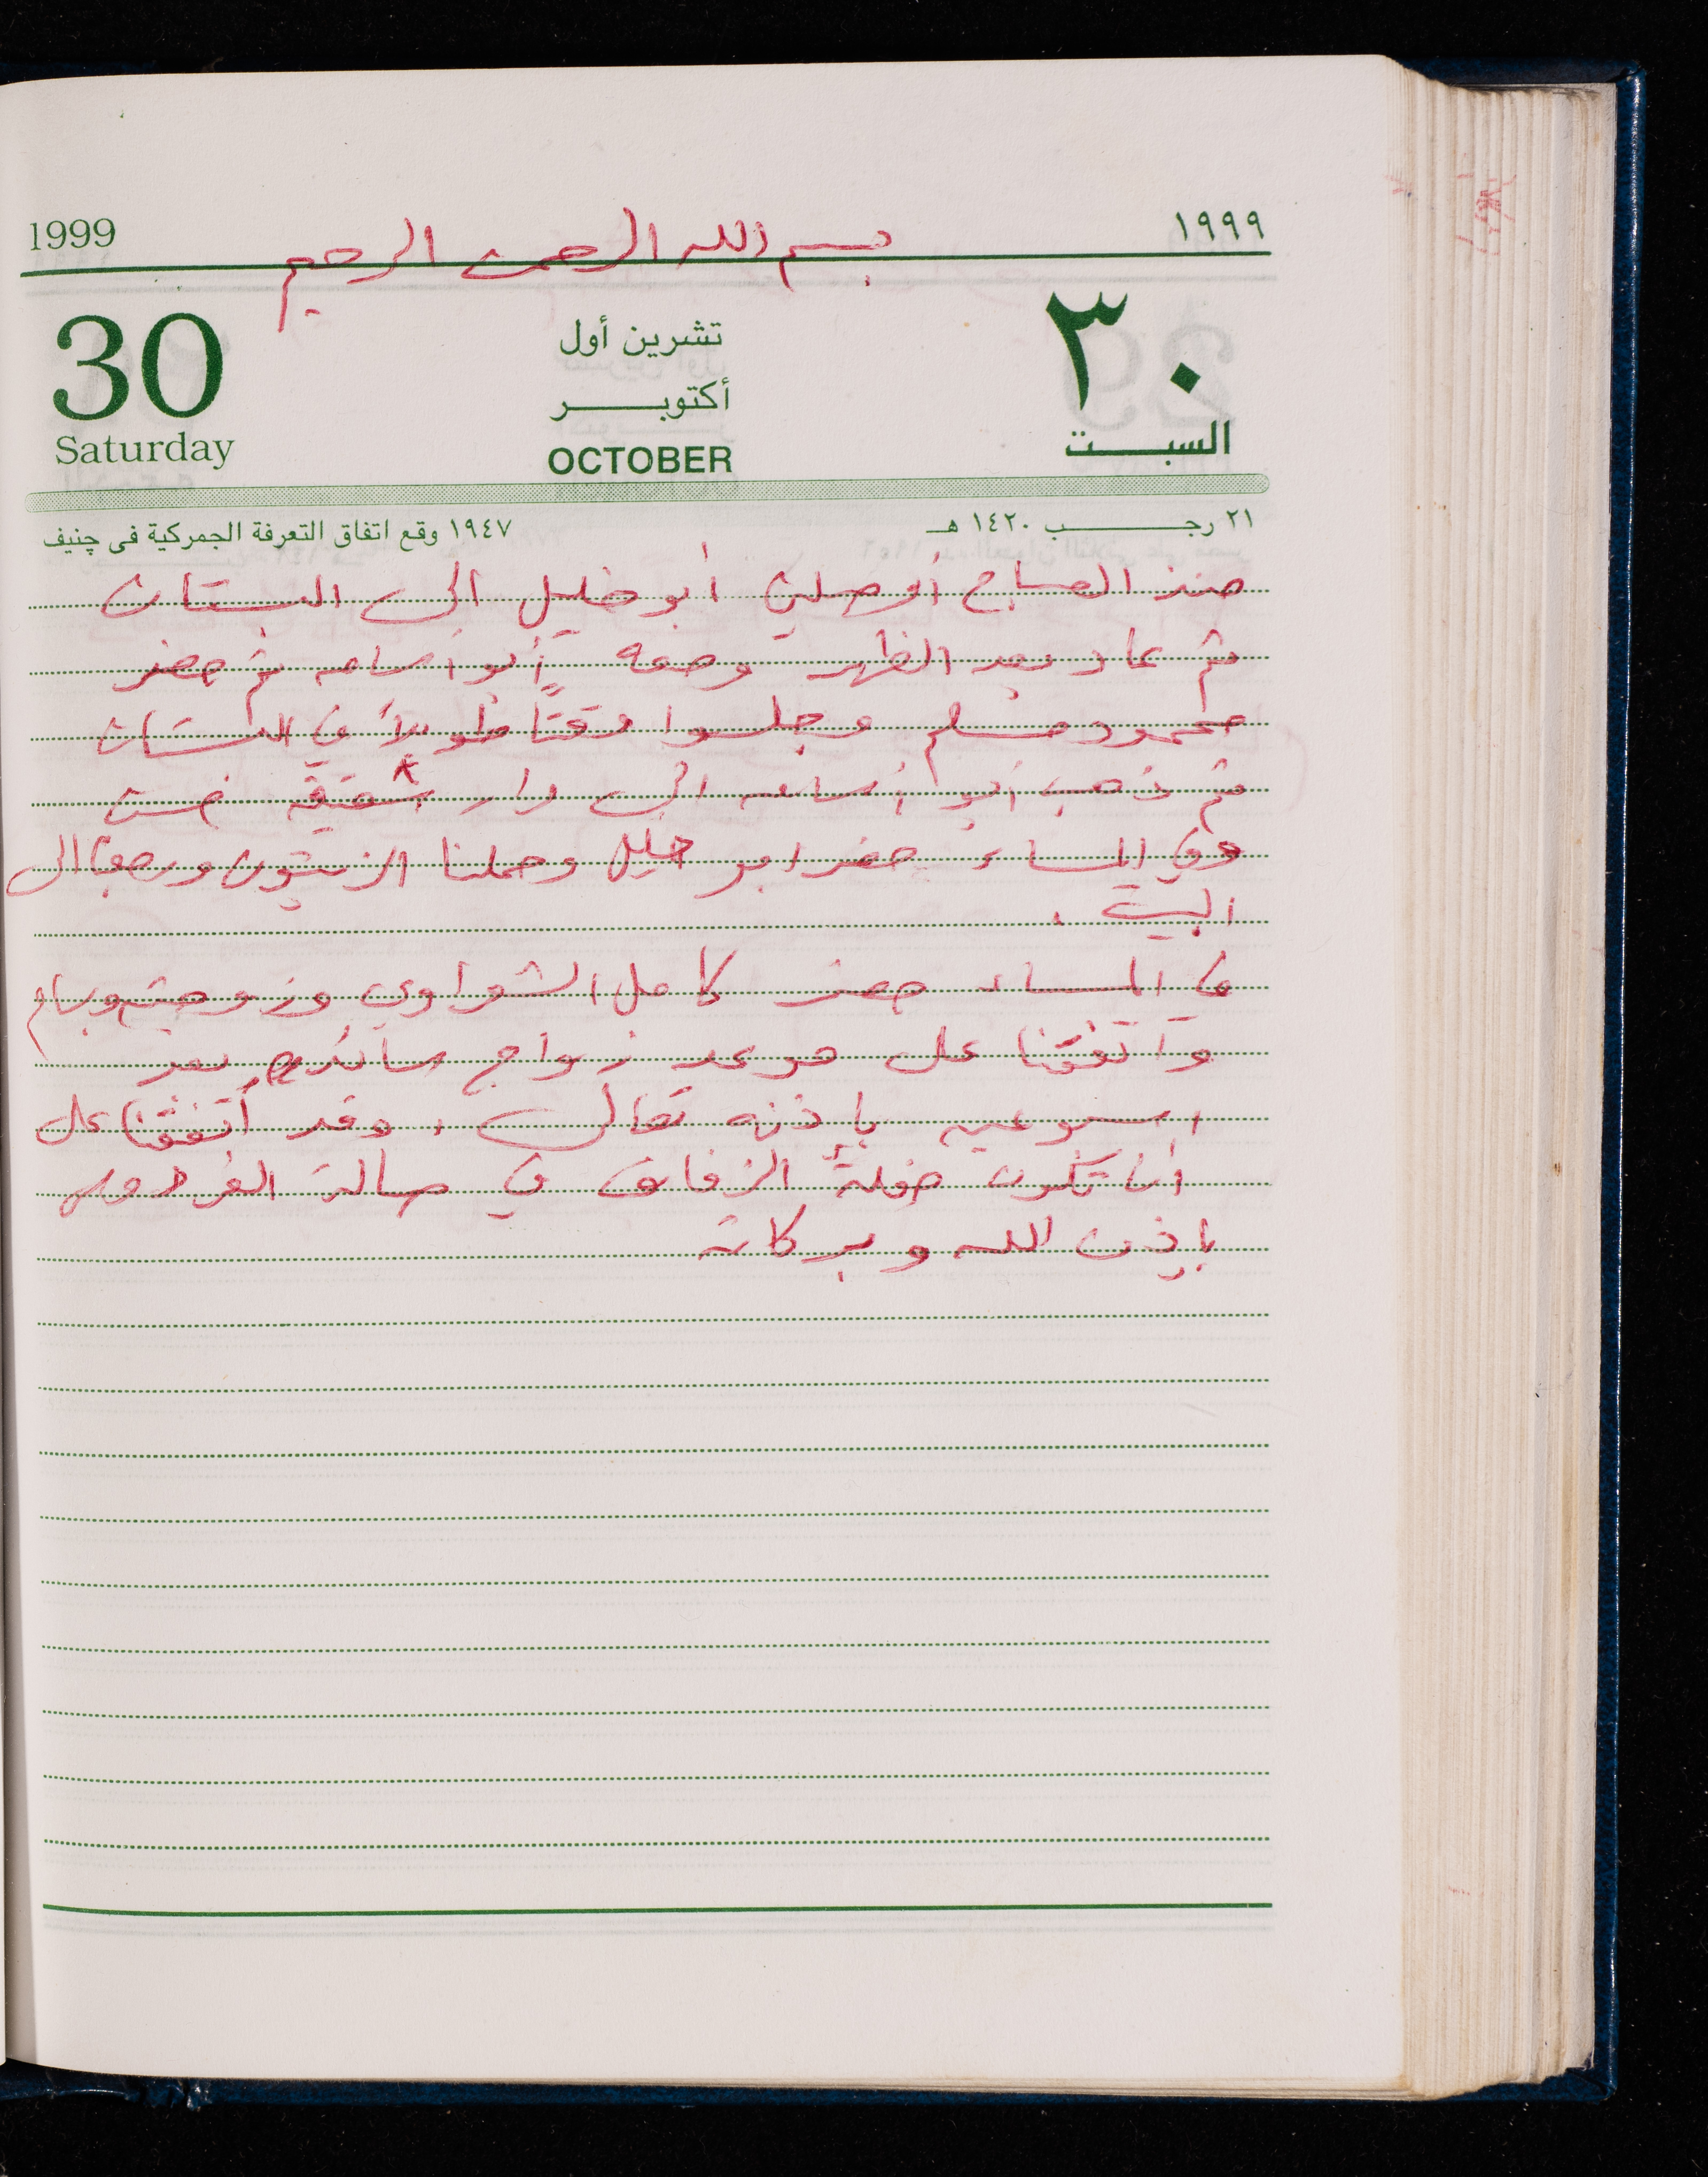 1999 بسم الله الرحمن الرحيم ١٩٩٩
30 تشرين أول ٣٠
أكتوبر
Saturday OCTOBER السبت
٢١ رجب ١٤٢٠ هـ ١٩٤٧ وقع اتفاق التعرفة الجمركية فى چنيف
منذ الصباح أوصلني أبو خليل الى البستان
ثم عاد بعد الظهر ومعه أبو اسامه ثم حضر
محمود مسلم وجلسوا وقتاً طويلاً في البستان
ثم ذهب أبو أسامه الى دار شقيقه
وفي المساء حضر ابو خليل وحملنا الزيتون ورجعنا الى
البيت .
في المساء حضر كامل الشعراوي وزوجته وبسام
واتفقنا على موعد زواج سائد بعد
اسبوعين بإذنه تعالى ، وقد أتفقنا على
أن تكون حفلة الزفاف في صالة الفردوس
بإذن الله وبركاته